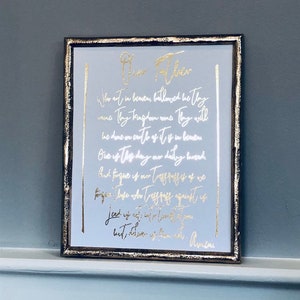 Our Father
Who art in heaven hallowed be Thy
name Thy Kingdom come Thy will
be done on earth as it is in heaven
Give us this day our daily bread
And forgive us our trespasses as we
forgive those who trespass against us
lead us not into temptation
but deliver us from evil
Amen